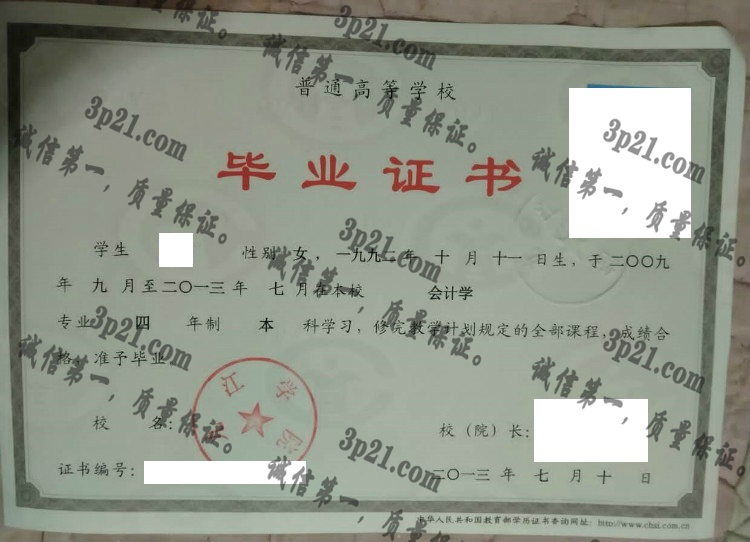 普通高等学校
毕业证书
学生 性别 女，一九九二年 十 月 十一 日生，于二〇〇九
年 九 月至二〇一三年 七 月在本校 会计学
专业 四 年制 本 科学习，修完教学计划规定的全部课程，成绩合
格，准予毕业
江学院
校 名：
校（院）长：
证书编号：
二〇一三 年 七 月 十 日
中华人民共和国教育部学历证书查询网址：http://www.chsi.com.cn
3p21.com
诚信第一，质量保证。
3p21.com
诚信第一，质量保证。
3p21.com
诚信第一，质量保证。
3p21.com
诚信第一，质量保证。
3p21.com
诚信第一，质量保证。
3p21.com
诚信第一，质量保证。
3p21.com
诚信第一，质量保证。
质量保证。